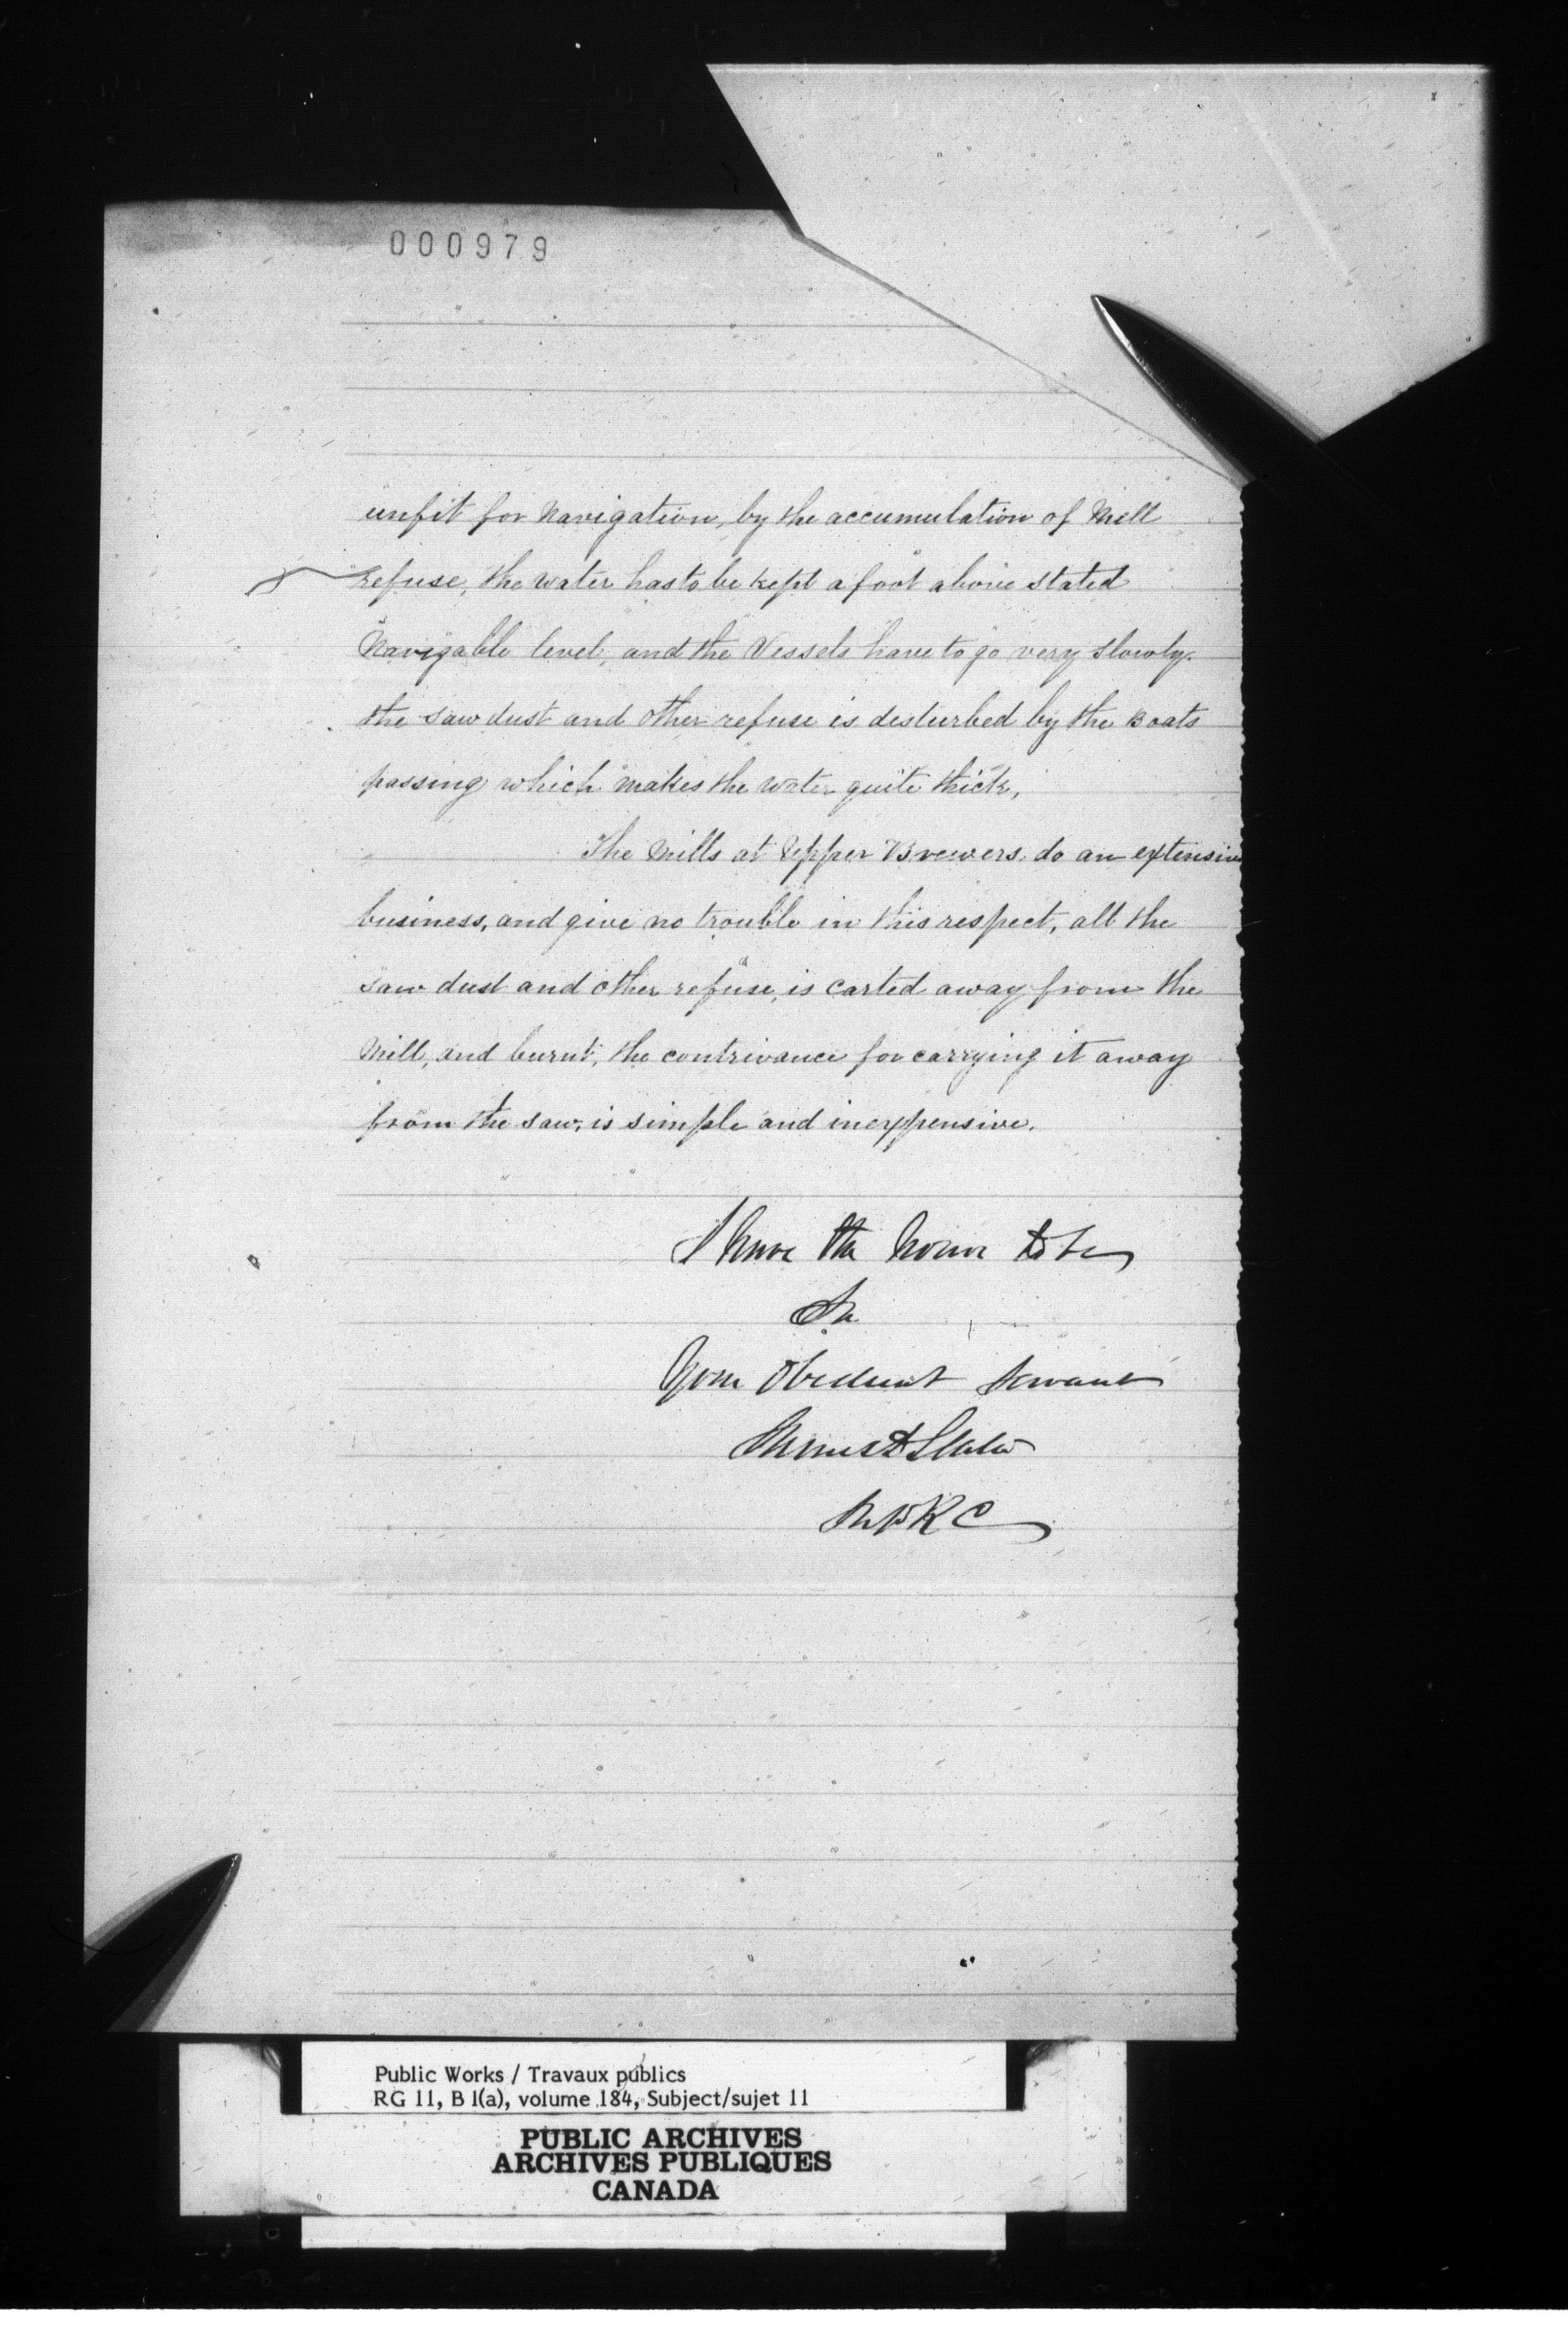 000979
unfit for Navigation, by the accumulation of Mill
refuse, the water has to be kept a foot above stated
Navigable level, and the Vessels have to go very slowly.
the saw dust and other refuse is desturbed by the Boats
passing which makes the water quite thick,
The Mills at Upper Brewers. do an extensive
business, and give no trouble in this respect, all the
saw dust and other refuse, is carted away from the
Mill, and burnt, the contrivance for carrying it away
from the saw, is simple and inexpensive.
I have the honor to be
Sir
Your Obedient Servant
Slater
RC
Public Works / Travaux publics
RG 11, B 1(a), volume 184, Subject/sujet 11
PUBLIC ARCHIVES
ARCHIVES PUBLIQUES
CANADA